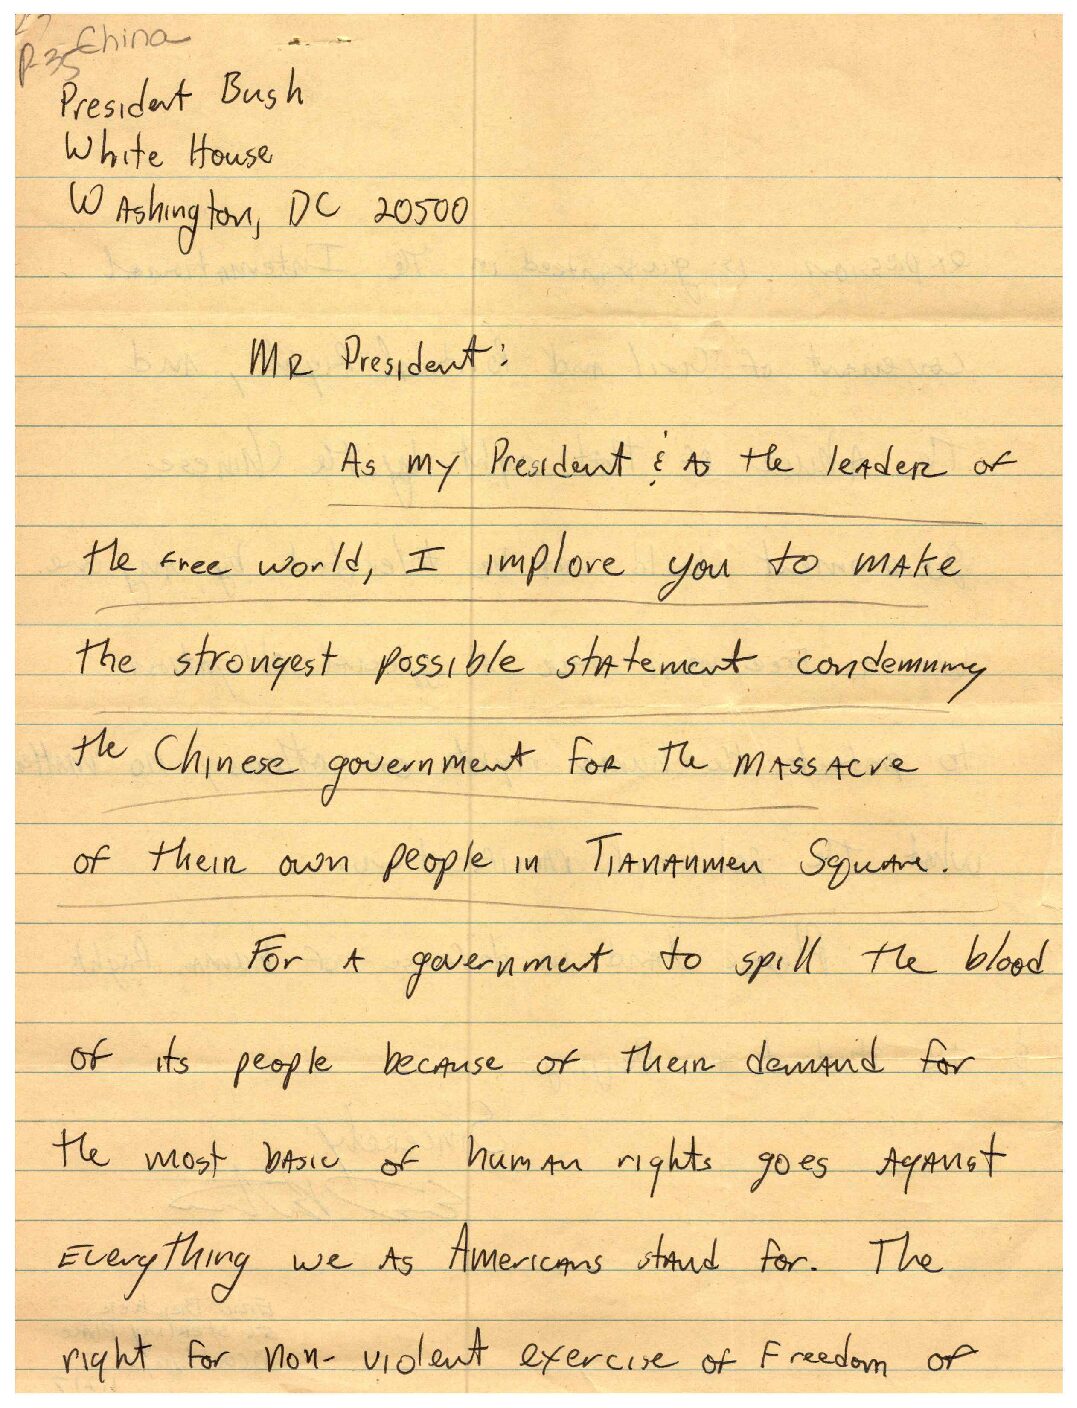 China
P-35
President Bush
White House
Washington, DC 20500
Mr President:
As my President & as the leader of
the free world, I implore you to make
the strongest possible statement condemning
the Chinese government for the massacre
of their own people in Tiananmen Square.
For a government to spill the blood
of its people because of their demand for
the most basic of human rights goes against
everything we as Americans stand for. The
right for non-violent exercise of freedom of